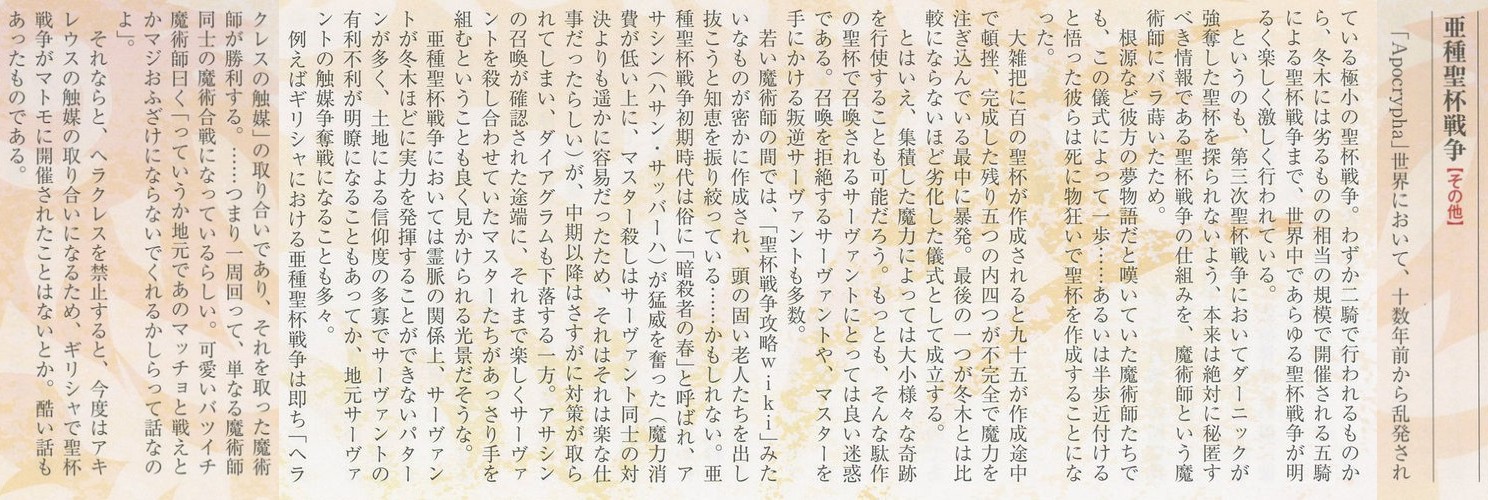 亜種聖杯戦争【その他】
「Apocrypha」世界において、十数年前から乱発され
ている極小の聖杯戦争。わずか二騎で行われるものか
ら、冬木には劣るものの相当の規模で開催される五騎
による聖杯戦争まで、世界中であらゆる聖杯戦争が明
るく楽しく激しく行われている。
というのも、第三次聖杯戦争においてダーニックが
強奪した聖杯を探られないよう、本来は絶対に秘匿す
べき情報である聖杯戦争の仕組みを、魔術師という魔
術師にバラ蒔いたため。
根源など彼方の夢物語だと嘆いていた魔術師たちで
も、この儀式によって一歩……あるいは半歩近付ける
と悟った彼らは死に物狂いで聖杯を作成することにな
った。
大雑把に百の聖杯が作成されると九十五が作成途中
で頓挫、完成した残り五つの内四つが不完全で魔力を
注ぎ込んでいる最中に暴発。最後の一つが冬木とは比
較にならないほど劣化した儀式として成立する。
とはいえ、集積した魔力によっては大小様々な奇跡
を行使することも可能だろう。もっとも、そんな駄作
の聖杯で召喚されるサーヴァントにとっては良い迷惑
である。召喚を拒絶するサーヴァントや、マスターを
手にかける叛逆サーヴァントも多数。
若い魔術師の間では、「聖杯戦争攻略ｗｉｋｉ」みた
いなものが密かに作成され、頭の固い老人たちを出し
抜こうと知恵を振り絞っている……かもしれない。亜
種聖杯戦争初期時代は俗に「暗殺者の春」と呼ばれ、ア
サシン（ハサン・サッバーハ）が猛威を奮った（魔力消
費が低い上に、マスター殺しはサーヴァント同士の対
決よりも遥かに容易だったため、それはそれは楽な仕
事だったらしい）が、中期以降はさすがに対策が取ら
れてしまい、ダイアグラムも下落する一方。アサシン
の召喚が確認された途端に、それまで楽しくサーヴァ
ントを殺し合わせていたマスターたちがあっさり手を
組むということも良く見かけられる光景だそうな。
亜種聖杯戦争においては霊脈の関係上、サーヴァン
トが冬木ほどに実力を発揮することができないパター
ンが多く、土地による信仰度の多寡でサーヴァントの
有利不利が明瞭になることもあってか、地元サーヴァ
ントの触媒争奪戦になることも多々。
例えばギリシャにおける亜種聖杯戦争は即ち「ヘラ
クレスの触媒」の取り合いであり、それを取った魔術
師が勝利する。……つまり一周回って、単なる魔術師
同士の魔術合戦になっているらしい。可愛いバツイチ
魔術師曰く「っていうか地元であのマッチョと戦えと
かマジおふざけにならないでくれるかしらって話なの
よ」。
それならと、ヘラクレスを禁止すると、今度はアキ
レウスの触媒の取り合いになるため、ギリシャで聖杯
戦争がマトモに開催されたことはないとか。酷い話も
あったものである。